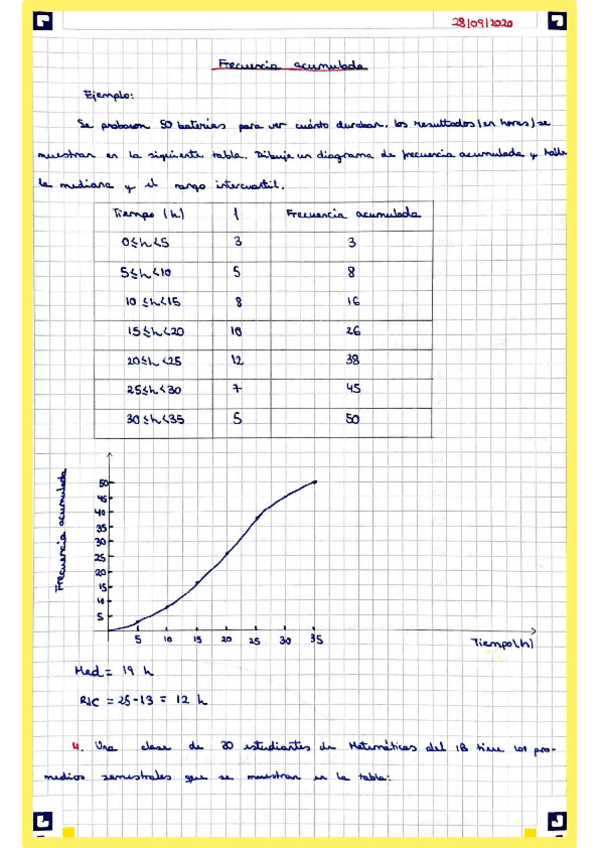 28/09/2020
Frecuencia acumulada
Ejemplo:
Se probaron 50 baterías para ver cuánto duraban. Los resultados (en horas) se
muestran en la siguiente tabla. Dibuje un diagrama de frecuencia acumulada y halle
la mediana y el rango intercuartil.
Tiempo (h) f Frecuencia acumulada
0≤h<5 3 3
5≤h<10 5 8
10≤h<15 8 16
15≤h<20 10 26
20≤h<25 12 38
25≤h<30 7 45
30≤h<35 5 50
Frecuencia acumulada
50
45
40
35
30
25
20
15
10
5
5 10 15 20 25 30 35
Tiempo (h)
Med = 19 h
RIC = 25-13 = 12 h
4. Una clase de 30 estudiantes de Matemáticas del IB tiene los pro-
medios semestrales que se muestran en la tabla: